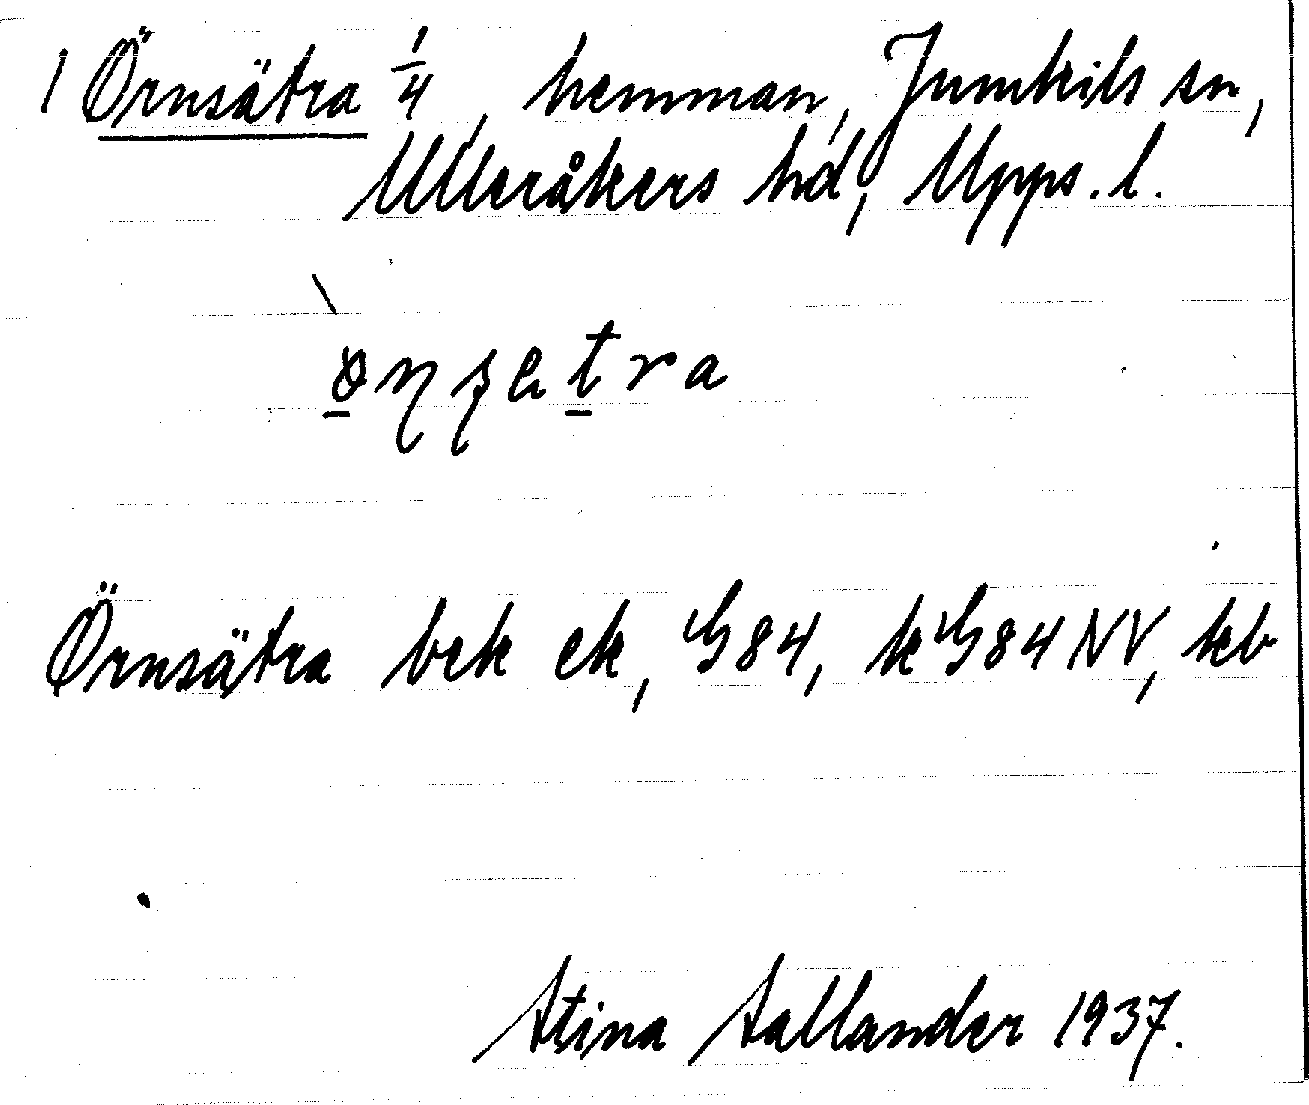 1 Örnsätra 1/4, hemman, Jumkils sn,
Ulleråkers hd, Upps. l.
Örnsätra bek ek, G84, kG84NV, kb
Stina Sallander 1937.